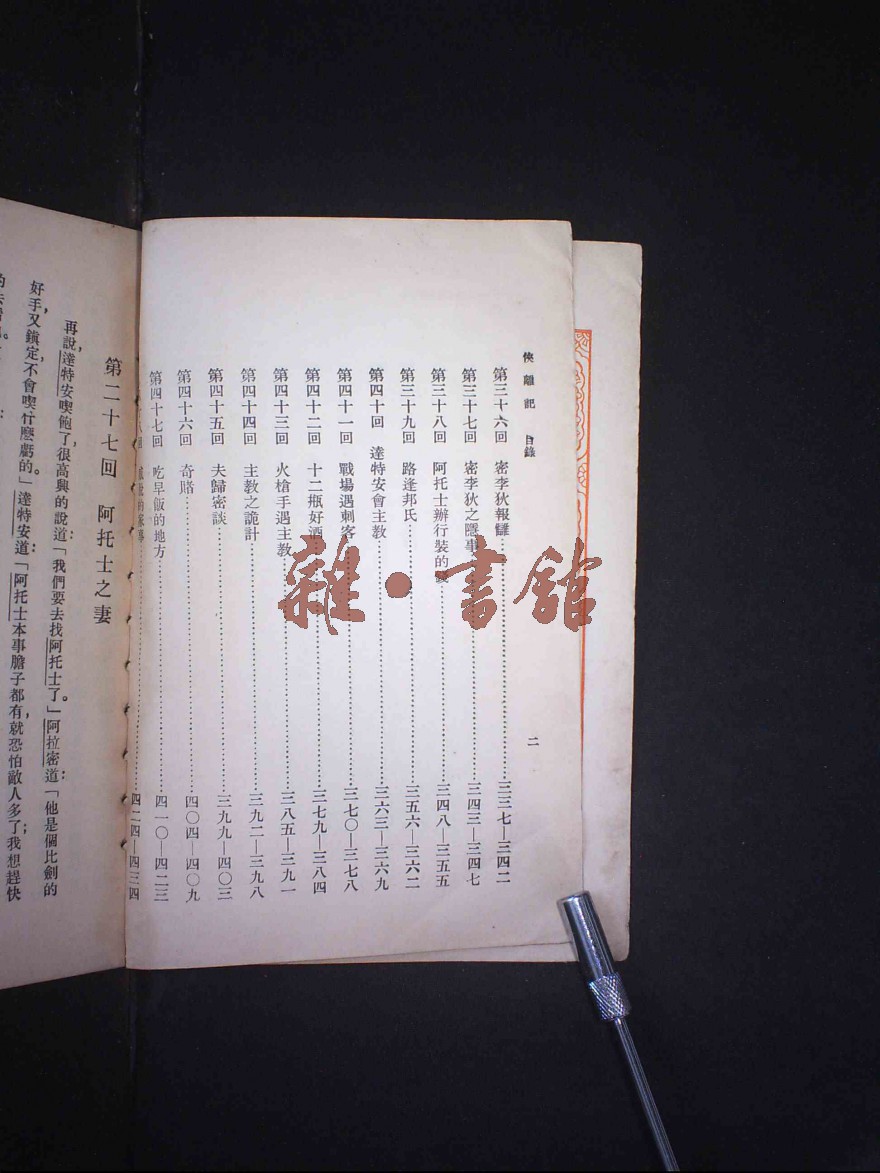 俠隱記 目錄
第三十六回 密李狄報讎 三三七—三四二
第三十七回 密李狄之隱事 三四三—三四七
第三十八回 阿托士辦行裝的 三四八—三五五
第三十九回 路逢邦氏 三五六—三六二
第四十回 達特安會主教 三六三—三六九
第四十一回 戰場遇刺客 三七〇—三七八
第四十二回 十二瓶好酒 三七九—三八四
第四十三回 火槍手遇主教 三八五—三九一
第四十四回 主教之詭計 三九二—三九八
第四十五回 夫歸密談 三九九—四〇三
第四十六回 奇賭 四〇四—四〇九
第四十七回 吃早飯的地方 四一〇—四二三
四二四—四三四
二
第二十七回 阿托士之妻
再說達特安喫飽了很高興的說道：「我們要去找阿托士了。」阿拉密道：「他是個比劍的
好手，又鎮定，不會喫什麽虧的。」達特安道：「阿托士本事膽子都有，就恐怕敵人多了；我想趕快
雜·書館